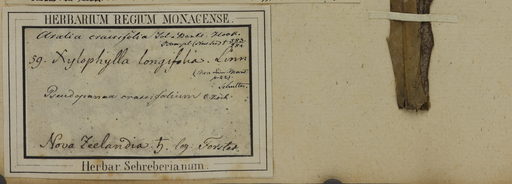 HERBARIUM REGIUM MONACENSE.
Aralia crassifolia Sol. Banks. Hook.
39. Xylophylla longifolia. Linn
Schultes.
Pseudopanax crassifolium C. Koch
Nova Zeelandia. ♄. leg. Forster.
Herbar Schreberianum.